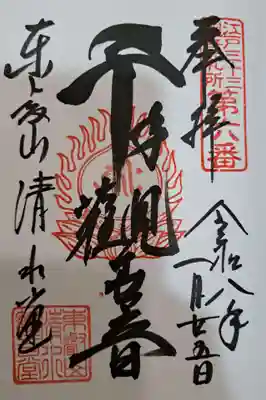 江戸三十三
観音札所
第六番
奉拝
令和八年
一月廿五日
千手観音
東叡山清水堂